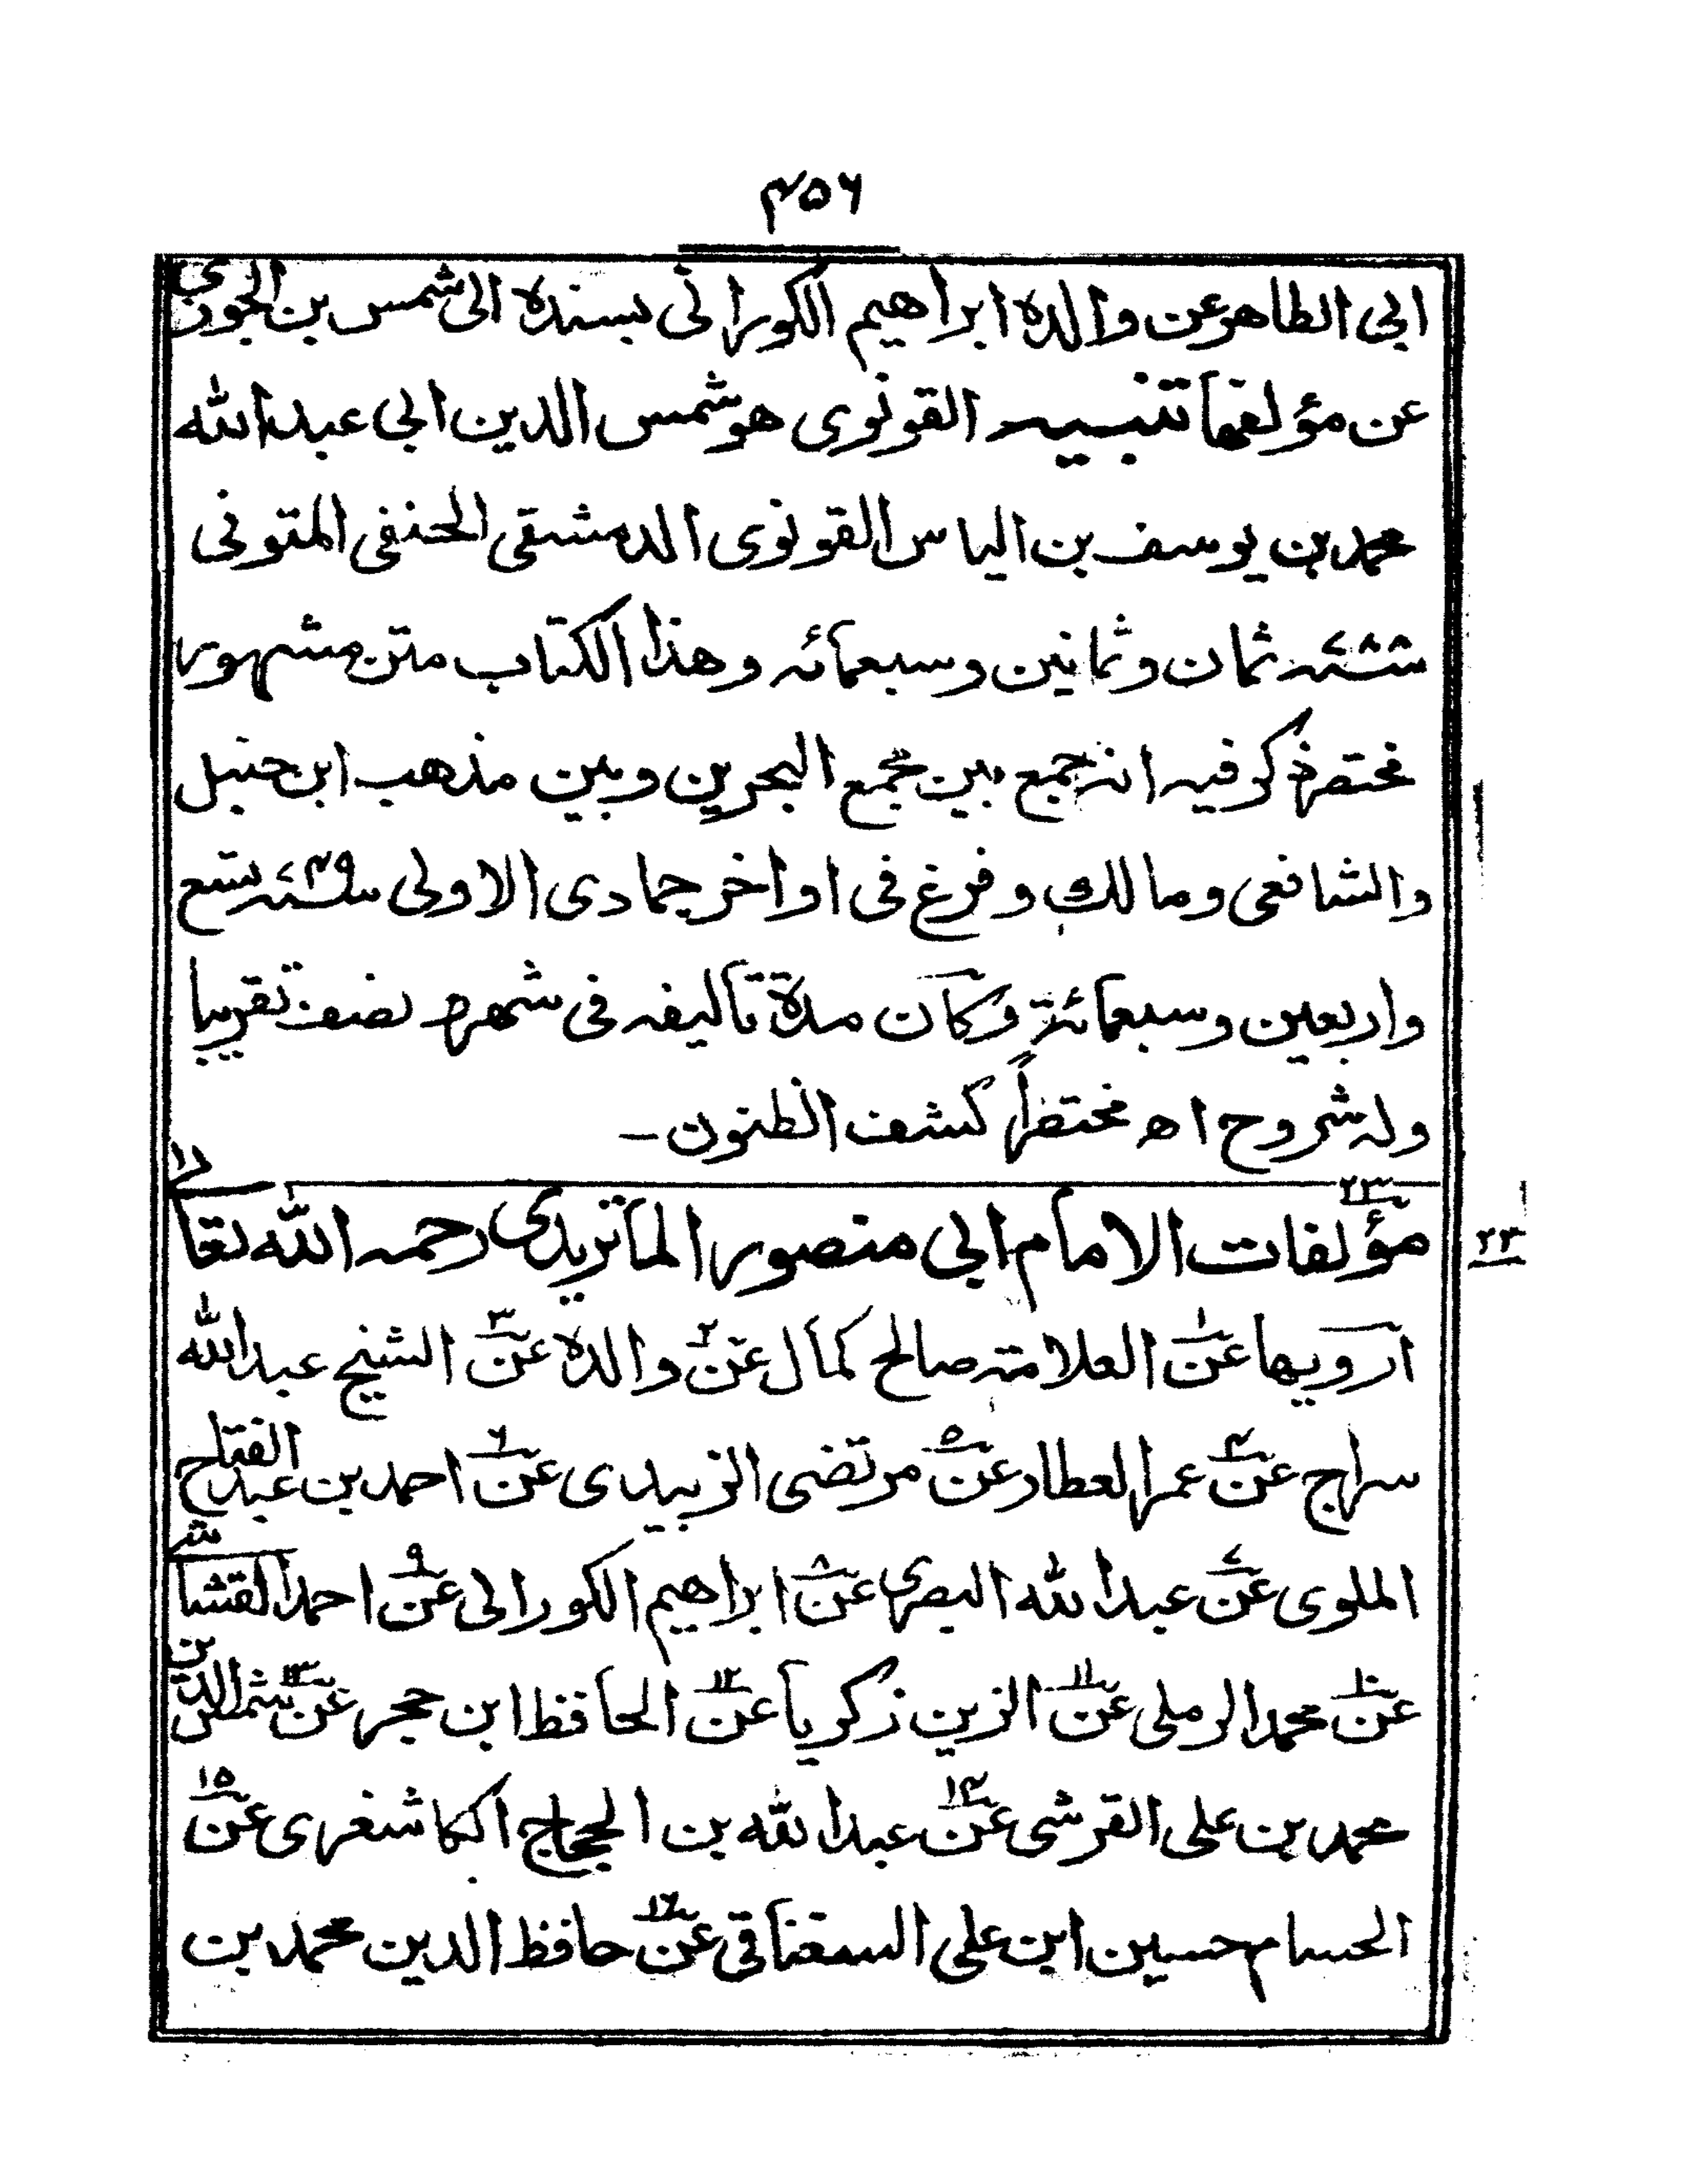 ۴۵۶
ابی الطاهر عن والده ابراهیم الکورانی بسنده الی شمس بن الجوزی
عن مؤلفها تنبیه القونوی هو شمس الدین ابی عبد الله
محمد بن یوسف بن الیاس القونوی الدمشقی الحنفی المتوفی
سنة ثمان وثمانین وسبعمائه وهذا الکتاب متن مشهور
مختصر ذکر فیه انه جمع بین مجمع البحرین وبین مذهب ابن حنبل
والشافعی ومالک وفرغ فی اواخر جمادی الاولی سنة ۴۹ تسع
واربعین وسبعمائة وکان مدة تألیفه فی شهر و نصف تقریبا
وله شروح اه مختصراً کشف الظنون ـ
۲۳
مؤلفات الامام ابی منصور الماتریدی رحمه الله تعالی
۲۳
ارویها عن ۱ العلامة صالح کمال عن ۲ والده عن ۳ الشیخ عبد الله
سراج عن ۴ عمر العطار عن ۵ مرتضی الزبیدی عن ۶ احمد بن عبد الفتاح
الملوی عن ۷ عبد الله البصری عن ۸ ابراهیم الکورانی عن ۹ احمد القشاشی
عن ۱۰ محمد الرملی عن ۱۱ الزین زکریا عن ۱۲ الحافظ ابن حجر عن ۱۳ شمس الدین
محمد بن علی القرشی عن ۱۴ عبد الله بن الحجاج الکاشغری عن ۱۵
الحسام حسین ابن علی السغناقی عن ۱۶ حافظ الدین محمد بن